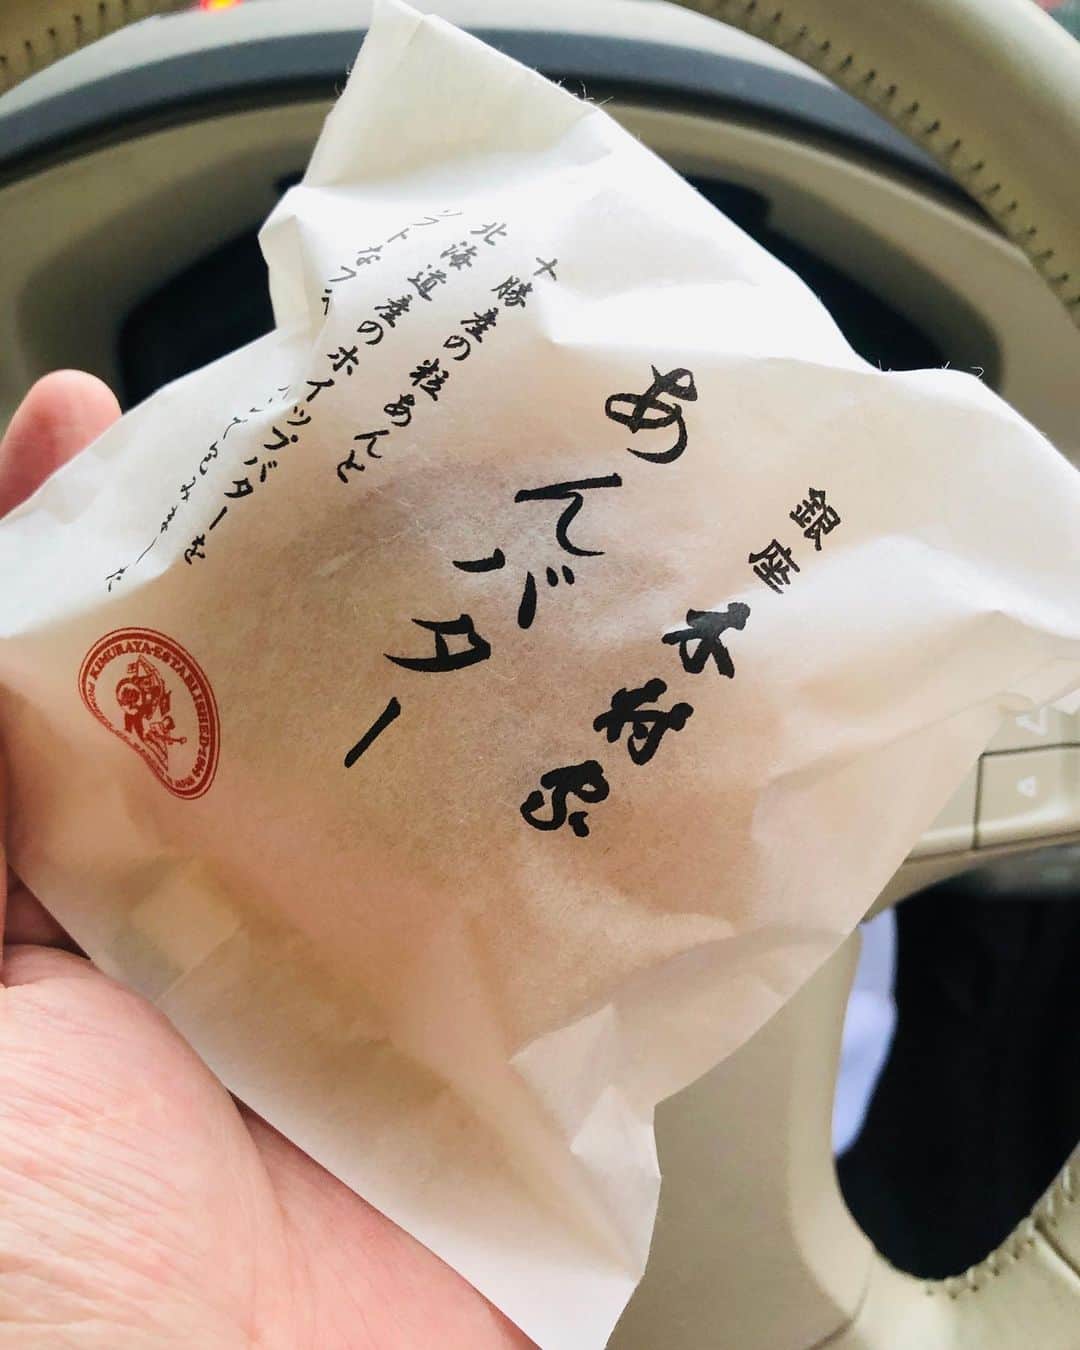 銀座
木村家
あんバター
十勝産の粒あんと
北海道産のホイップバターを
ソフトなフ
包みました
KIMURAYA·ESTABLISHED·1869